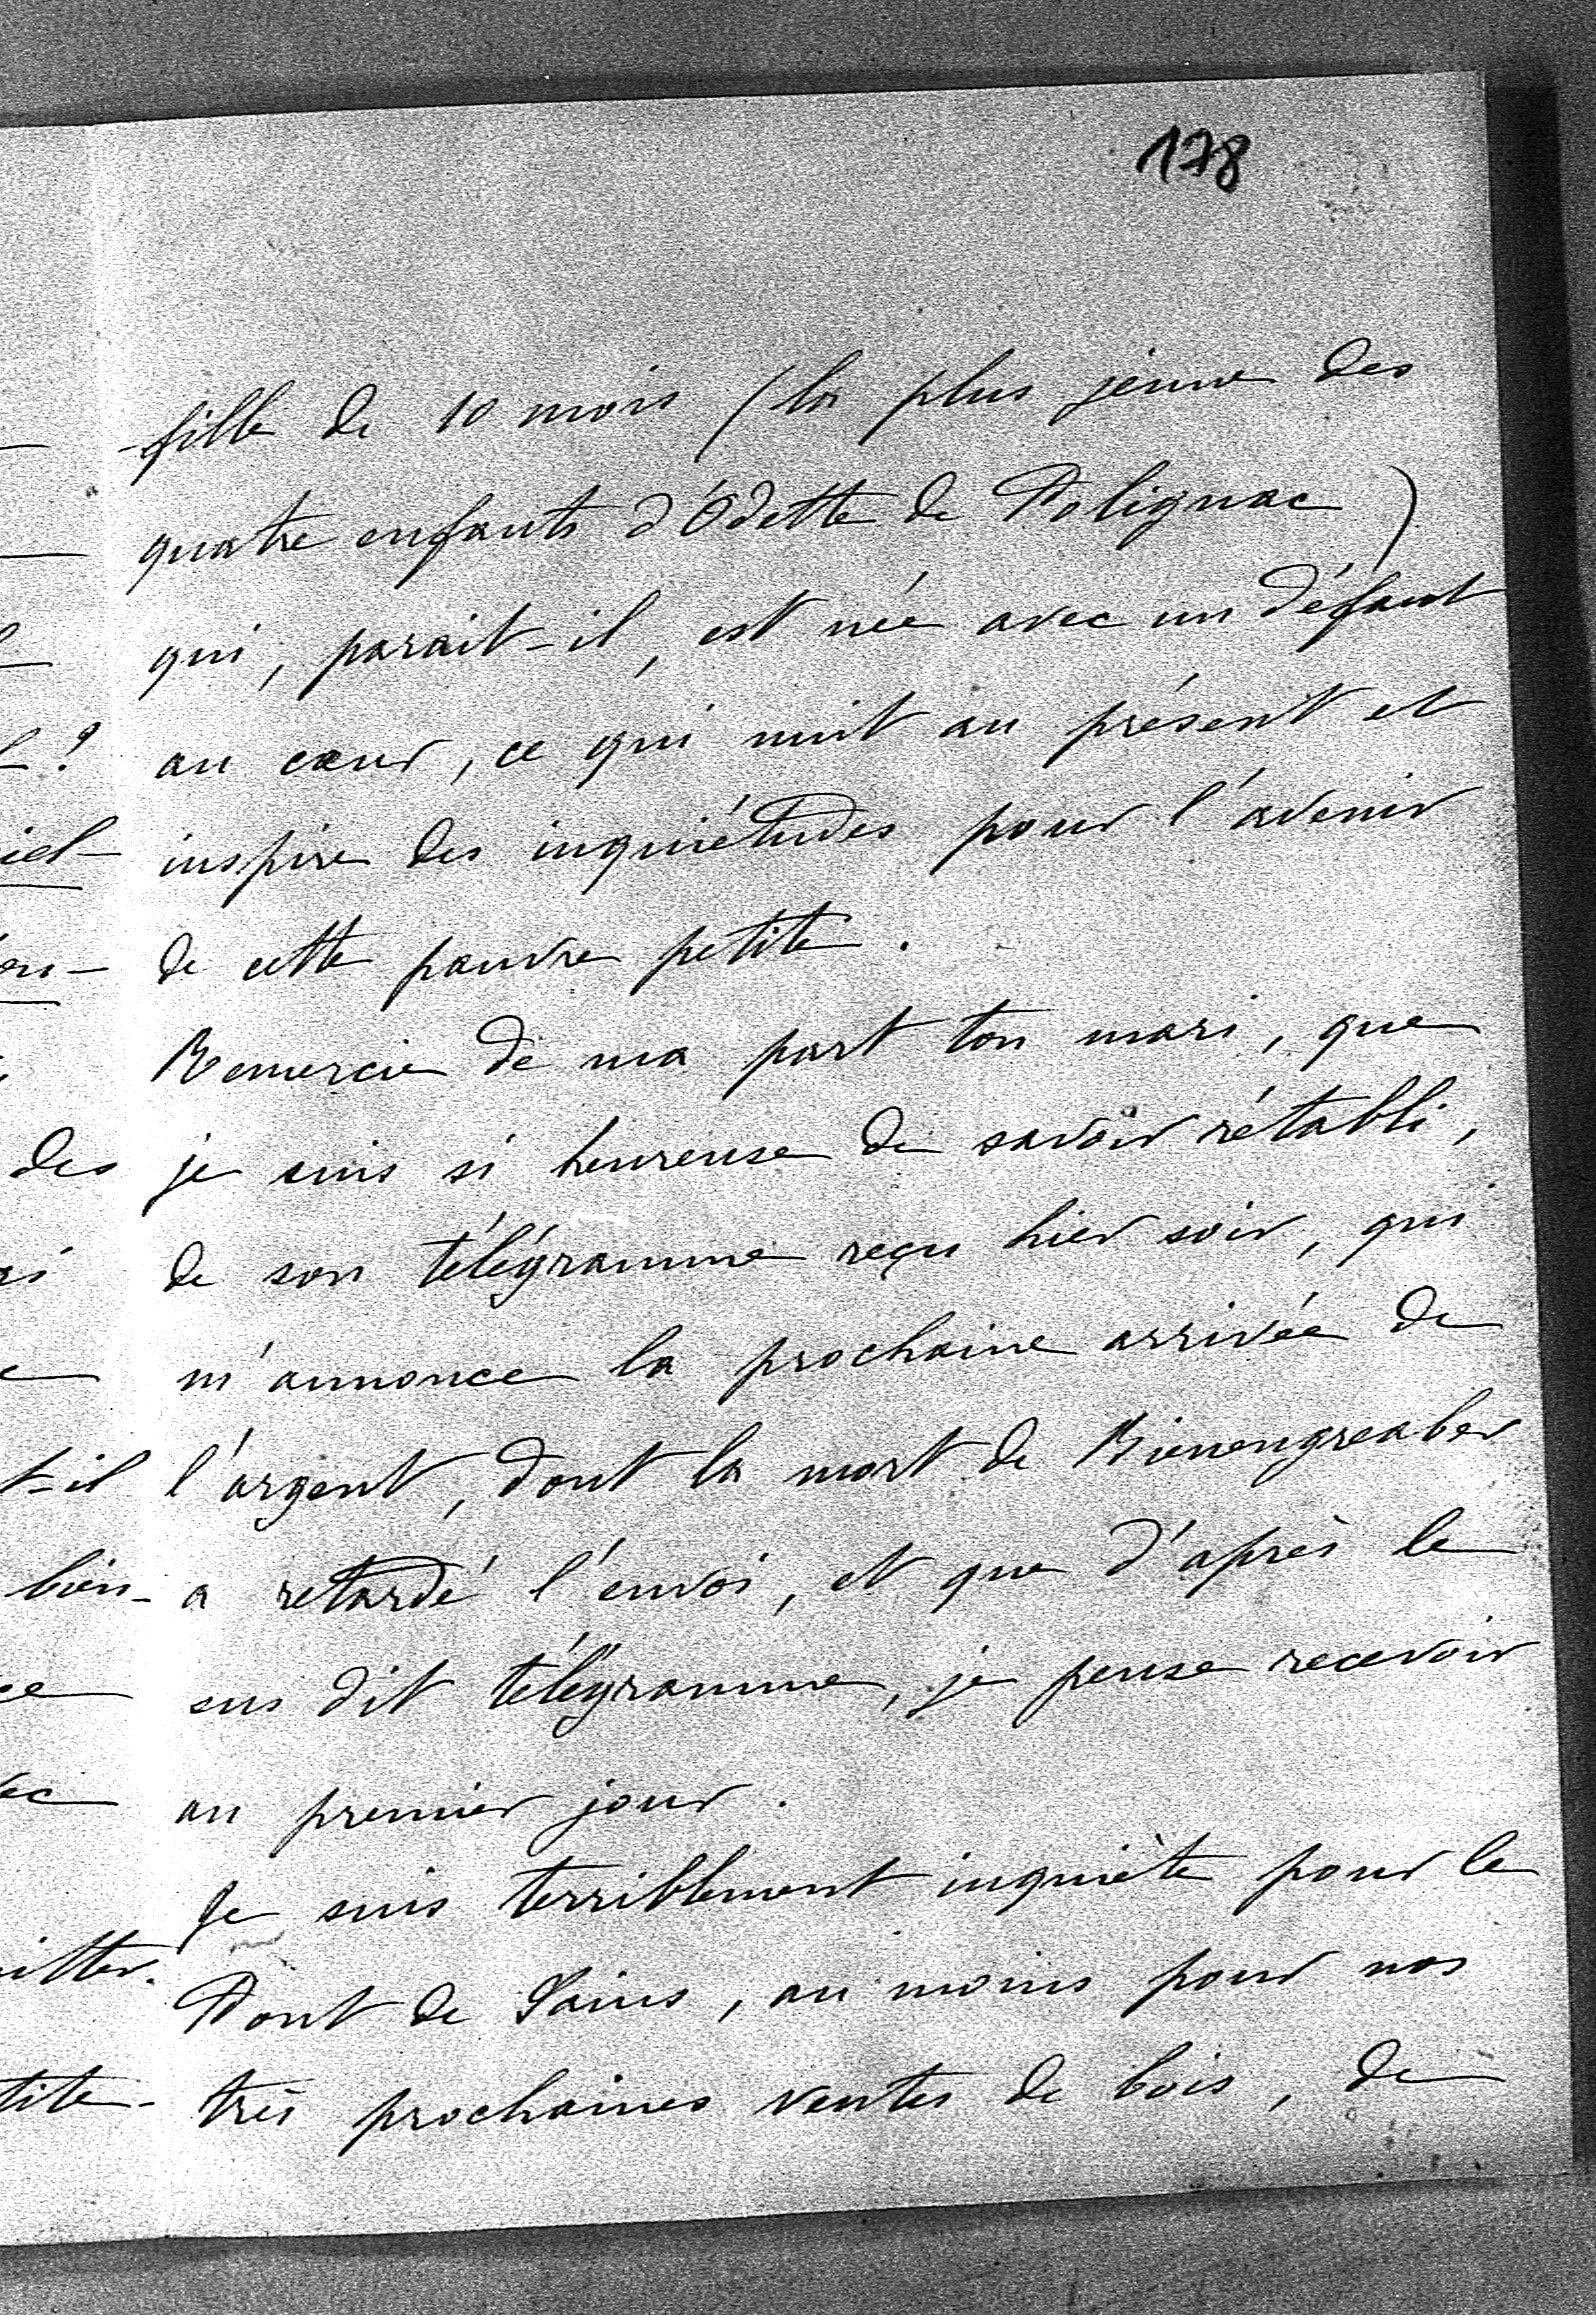 178
fille de 10 mois (la plus jeune des
quatre enfants d'Odette de Polignac)
qui, parait-il, est née avec un défaut
au cœur, ce qui nuit au présent et
inspire des inquiétudes pour l'avenir
de cette pauvre petite.
Remercie de ma part ton mari, que
je suis si heureuse de savoir rétabli,
de son télégramme reçu hier soir, qui
m'annonce la prochaine arrivée de
l'argent, dont la mort de Bienengreaber
a retardé l'envoi, et que d'après le
sus dit télégramme, je pense recevoir
au premier jour.
Je suis terriblement inquiète pour le
Pont de Sains, au moins pour nos
très prochaines ventes de bois, de